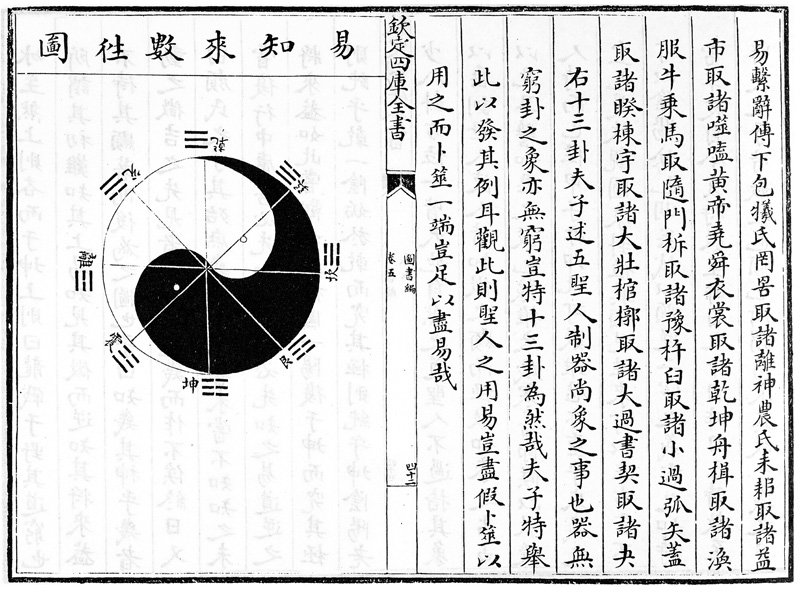 易繫辭傳下包犧氏罔罟取諸離神農氏耒耜取諸益
市取諸噬嗑黄帝堯舜衣裳取諸乾坤舟楫取諸渙
服牛乘馬取隨門柝取諸豫杵臼取諸小過弧矢蓋
取諸睽棟宇取諸大壯棺槨取諸大過書契取諸夬
右十三卦夫子述五聖人制器尚象之事也器無
窮卦之象亦無窮豈特十三卦為然哉夫子特舉
此以發其例耳觀此則聖人之用易豈盡假卜筮以
用之而卜筮一端豈足以盡易哉
欽定四庫全書
圖書編
卷五
四十二
易知來數往圖
乾
巽
坎
艮
坤
震
離
兌